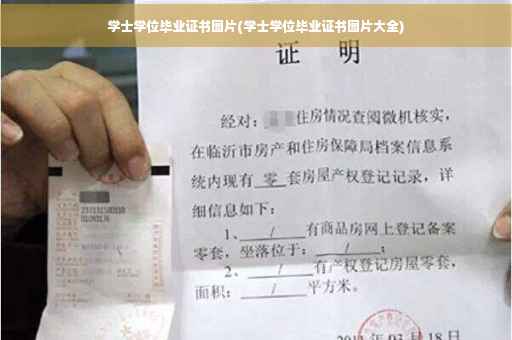 学士学位毕业证书图片(学士学位毕业证书图片大全)
证 明
经对: 住房情况查阅微机核实,
在临沂市房产和住房保障局档案信息系
统内现有 零 套房屋产权登记记录, 详
细信息如下:
1、 / 有商品房网上登记备案
零套, 坐落位于: / ;
2、 / 有产权登记房屋零套,
面积: / 平方米。
年 03 月 18 日